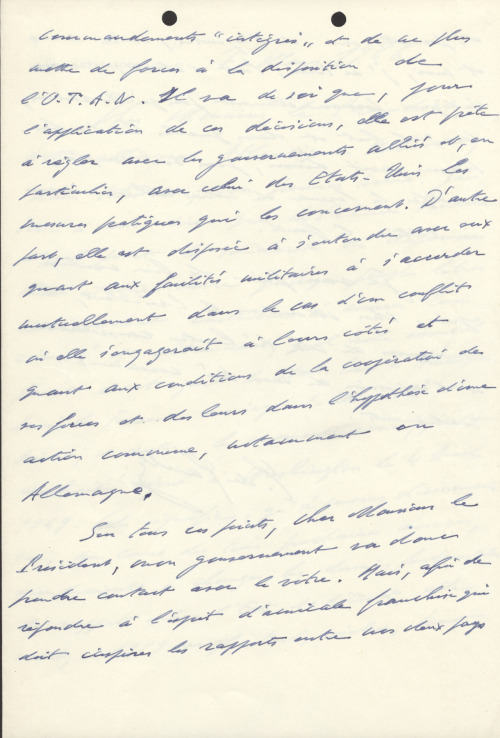 commandements "intégrés" et de ne plus
mettre de forces à la disposition de
l'O.T.A.N. Il va de soi que, pour
l'application de ces décisions, elle est prête
à régler avec les gouvernements alliés et, en
particulier, avec celui des Etats-Unis les
mesures pratiques qui les concernent. D'autre
part, elle est disposée à s'entendre avec eux
quant aux facilités militaires à s'accorder
mutuellement dans le cas d'un conflit
où elle s'engagerait à leurs côtés et
quant aux conditions de la coopération de
ses forces et des leurs dans l'hypothèse d'une
action commune, notamment en
Allemagne.
Sur tous ces points, cher Monsieur le
Président, mon gouvernement va donc
prendre contact avec le vôtre. Mais, afin de
répondre à l'esprit d'amicale franchise qui
doit inspirer les rapports entre nos deux pays